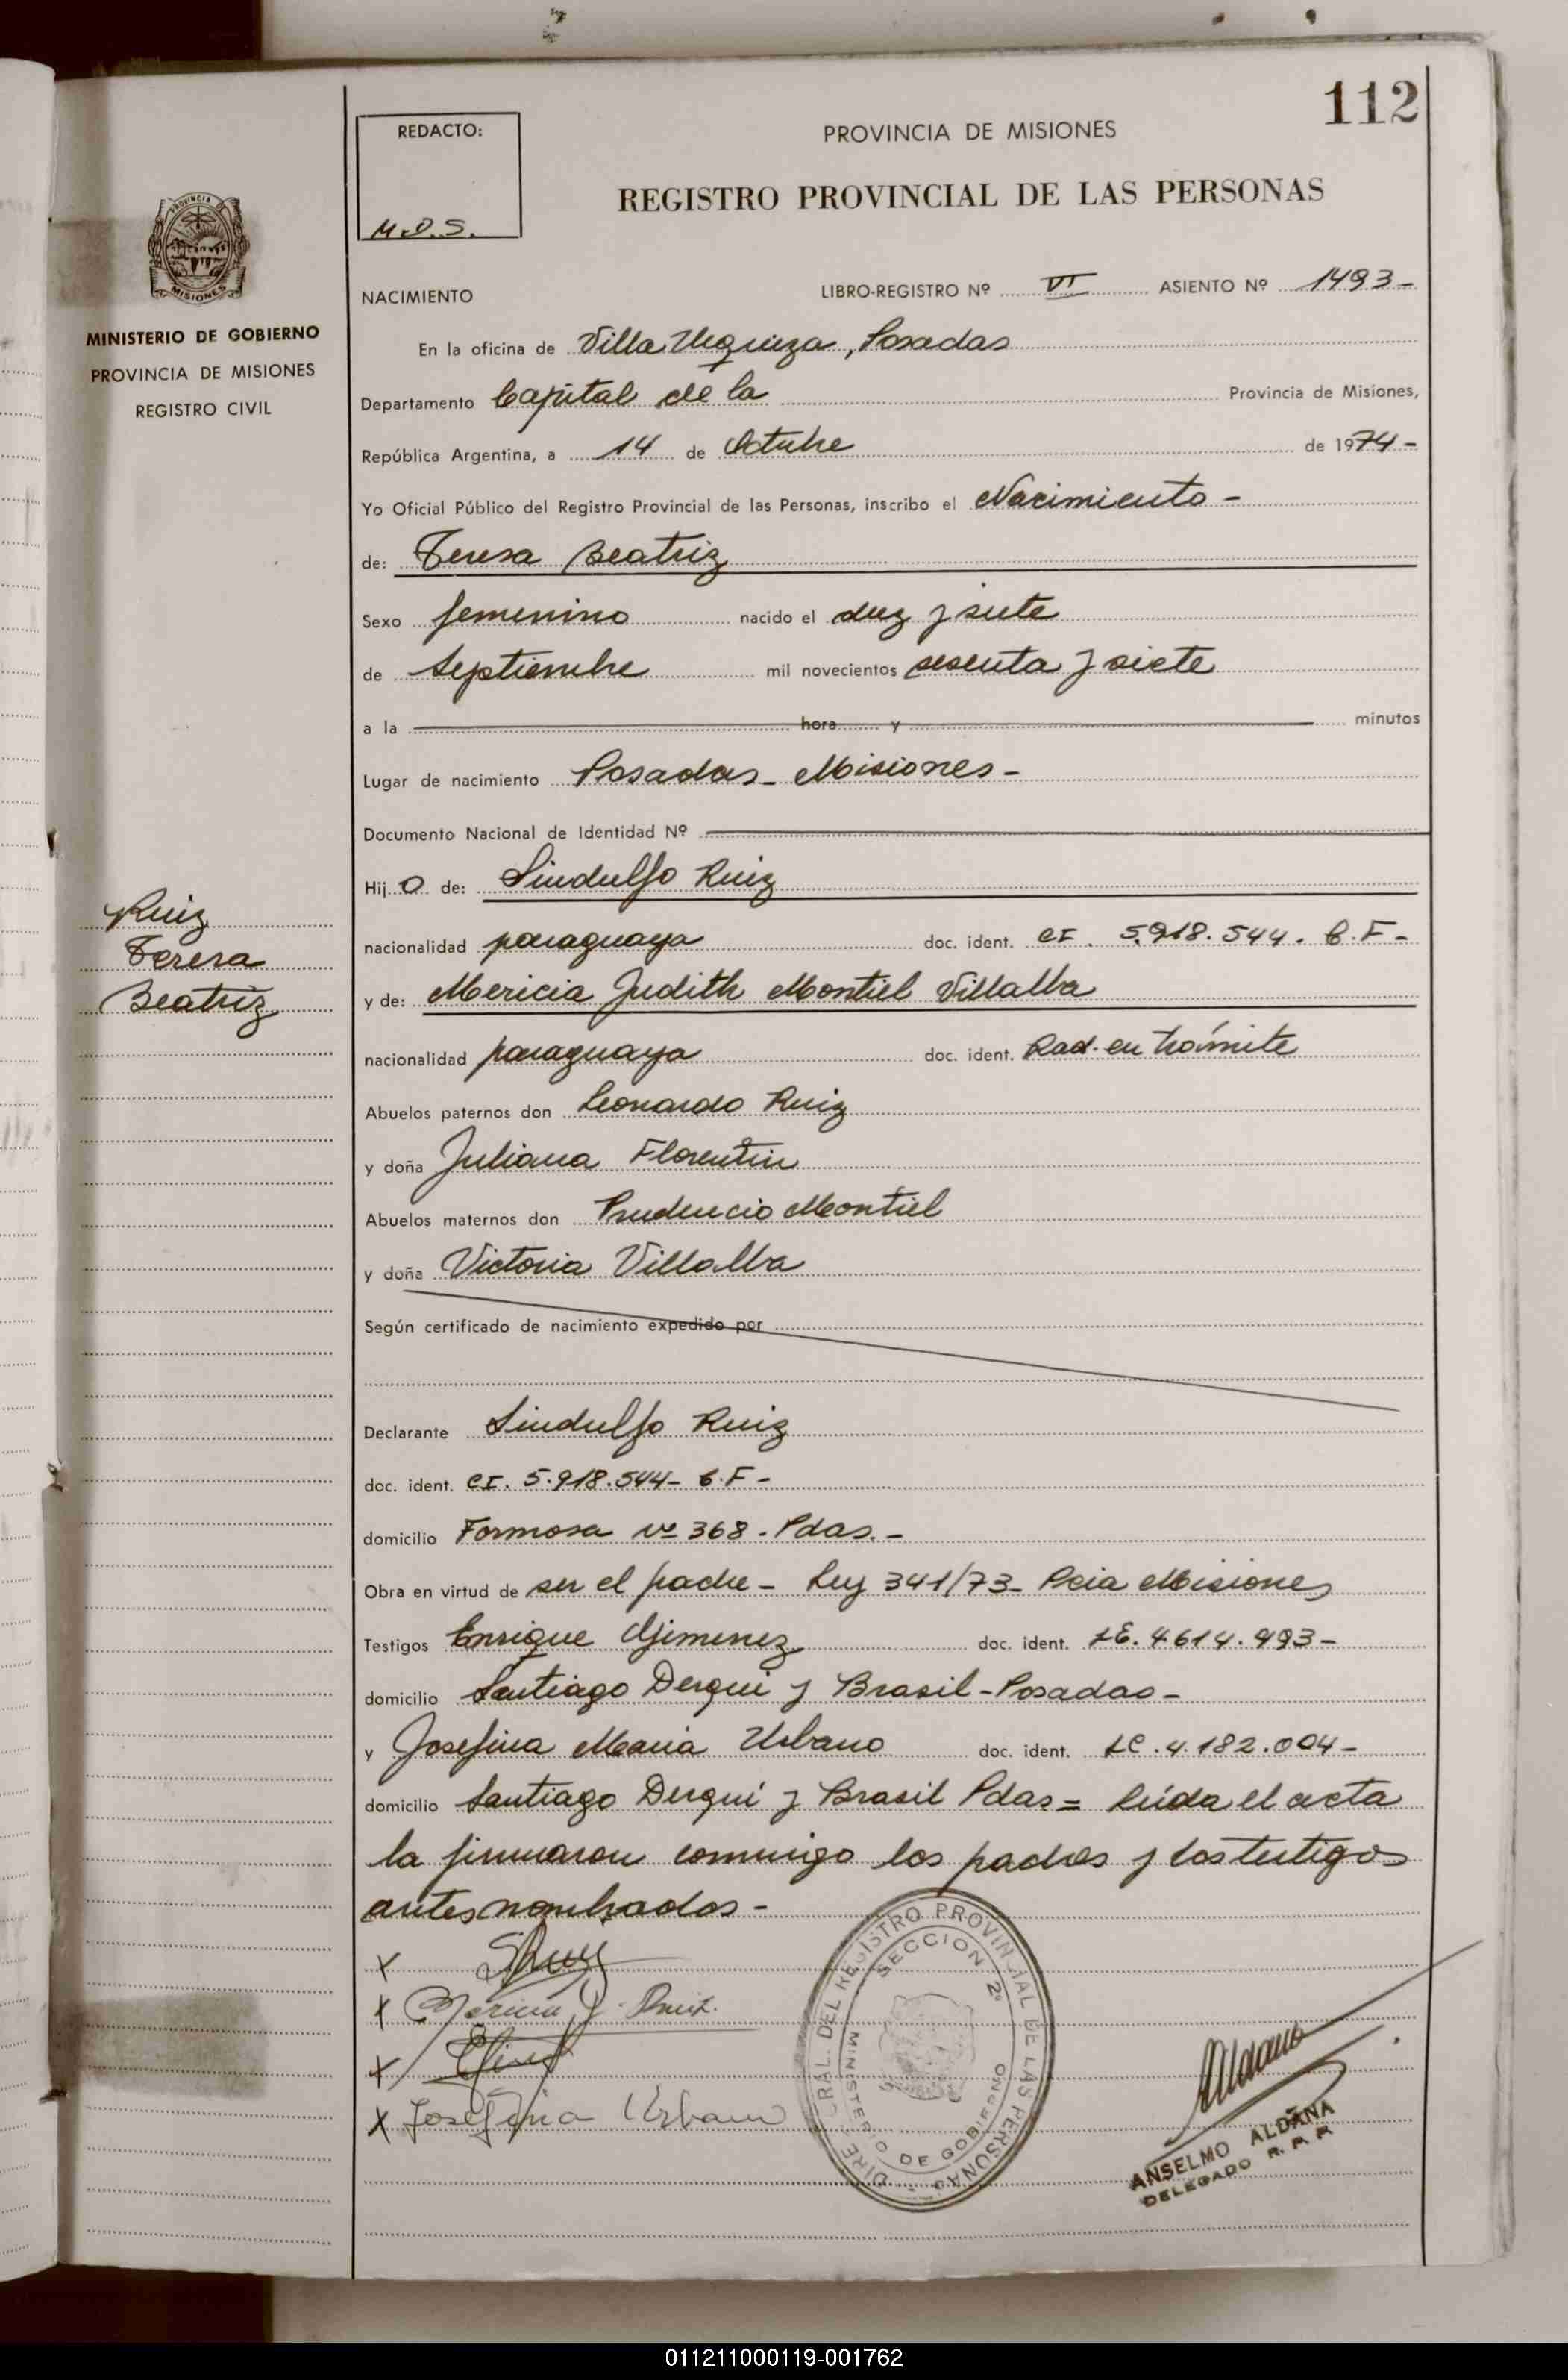 112
REDACTO:
M.D.S.
PROVINCIA DE MISIONES
REGISTRO PROVINCIAL DE LAS PERSONAS
PROVINCIA
MISIONES
MINISTERIO DE GOBIERNO
PROVINCIA DE MISIONES
REGISTRO CIVIL
NACIMIENTO LIBRO-REGISTRO Nº VI ASIENTO Nº 1493-
En la oficina de Villa Urquiza, Posadas
Departamento Capital de la Provincia de Misiones,
República Argentina, a 14 de Octubre de 1974-
Yo Oficial Público del Registro Provincial de las Personas, inscribo el Nacimiento-
de: Teresa Beatriz
Sexo femenino nacido el diez y siete
de Septiembre mil novecientos sesenta y siete
a la hora y minutos
Lugar de nacimiento Posadas - Misiones-
Documento Nacional de Identidad Nº
Hij o de: Sindulfo Ruiz
nacionalidad paraguaya doc. ident. CI. 5.918.544. C.F-
y de: Mericia Judith Montiel Villalba
nacionalidad paraguaya doc. ident. Rad. en trámite
Abuelos paternos don Leonardo Ruiz
y doña Juliana Florentin
Abuelos maternos don Prudencio Montiel
y doña Victoria Villalba
Según certificado de nacimiento expedido por
Declarante Sindulfo Ruiz
doc. ident. CI. 5.918.544- C.F-
domicilio Formosa Nº 368 - Pdas.-
Obra en virtud de ser el padre - Ley 341/73- Pcia Misiones
Testigos Enrique Gimenez doc. ident. LE. 4.614.993-
domicilio Santiago Derqui y Brasil - Posadas-
y Josefina Maria Urbano doc. ident. LC. 4.182.004-
domicilio Santiago Derqui y Brasil Pdas = Leída el acta
la firmaron conmigo los padres y los testigos
antes nombrados-
Ruiz
Teresa
Beatriz
X
X Mericia J. Ruiz.
X
X Josefina Urbano
DIREC. GRAL. DEL REGISTRO PROVINCIAL DE LAS PERSONAS
SECCION 2ª
MINISTERIO DE GOBIERNO
Aldana
ANSELMO ALDANA
DELEGADO R. P. P.
011211000119-001762